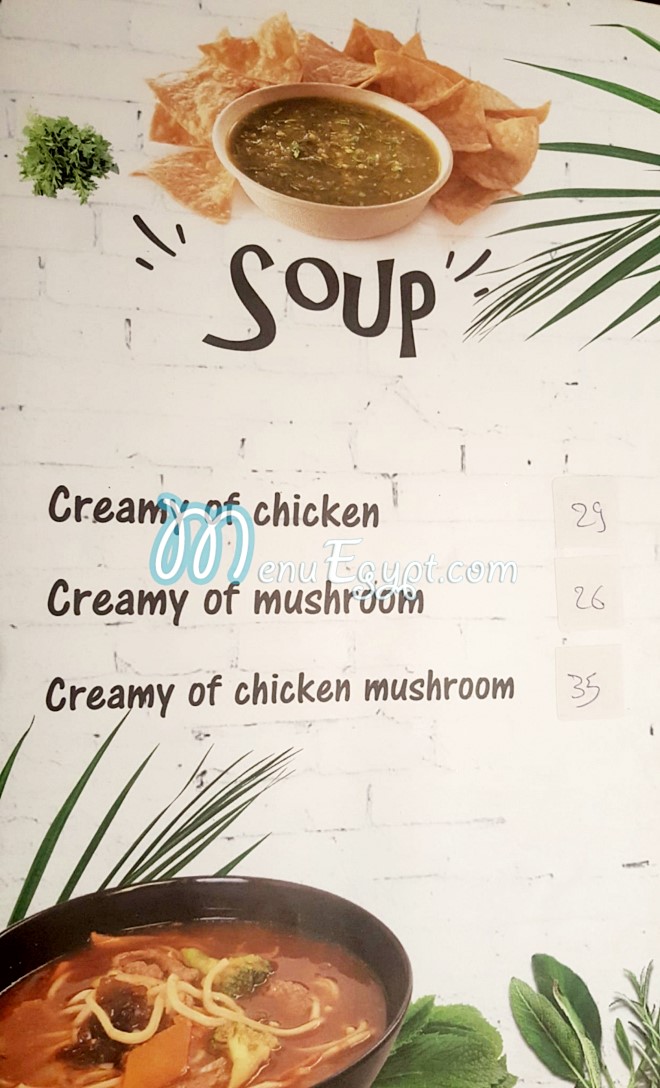 SOUP
Creamy of chicken 29
MenuEgypt.com
Creamy of mushroom 26
Creamy of chicken mushroom 35